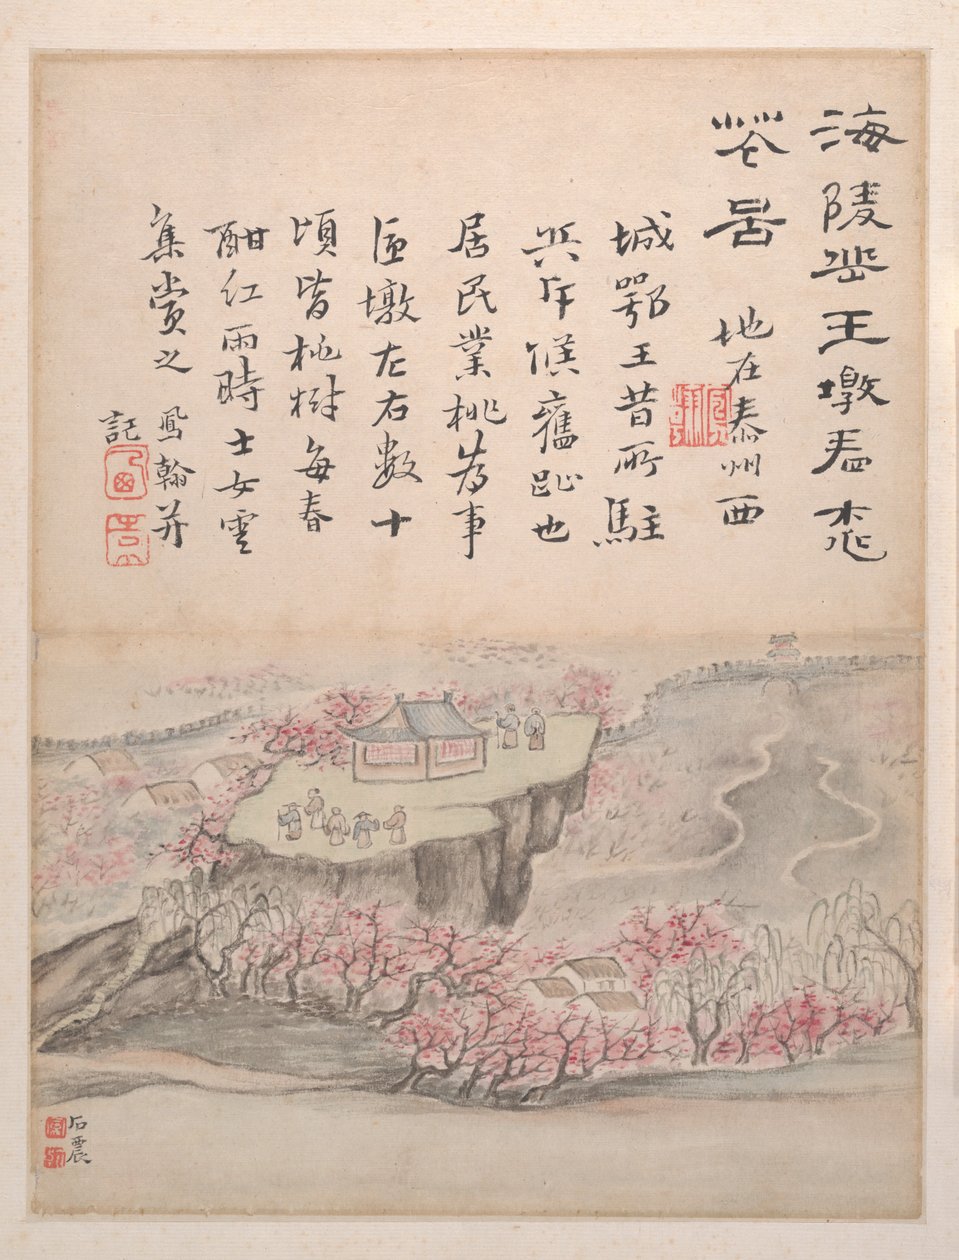 海陵岳王墩看桃
花啚 地在泰州西
城鄂王昔所駐
兵斥候舊趾也
居民業桃為事
墩左右數十
頃皆桃樹每春
酣紅雨時士女雲
集賞之 鳳翰并
記
石震